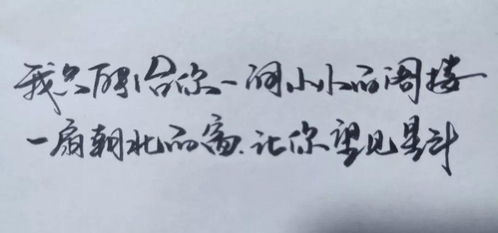 我只能给你一间小小的阁楼
一扇朝北的窗.让你望见星斗